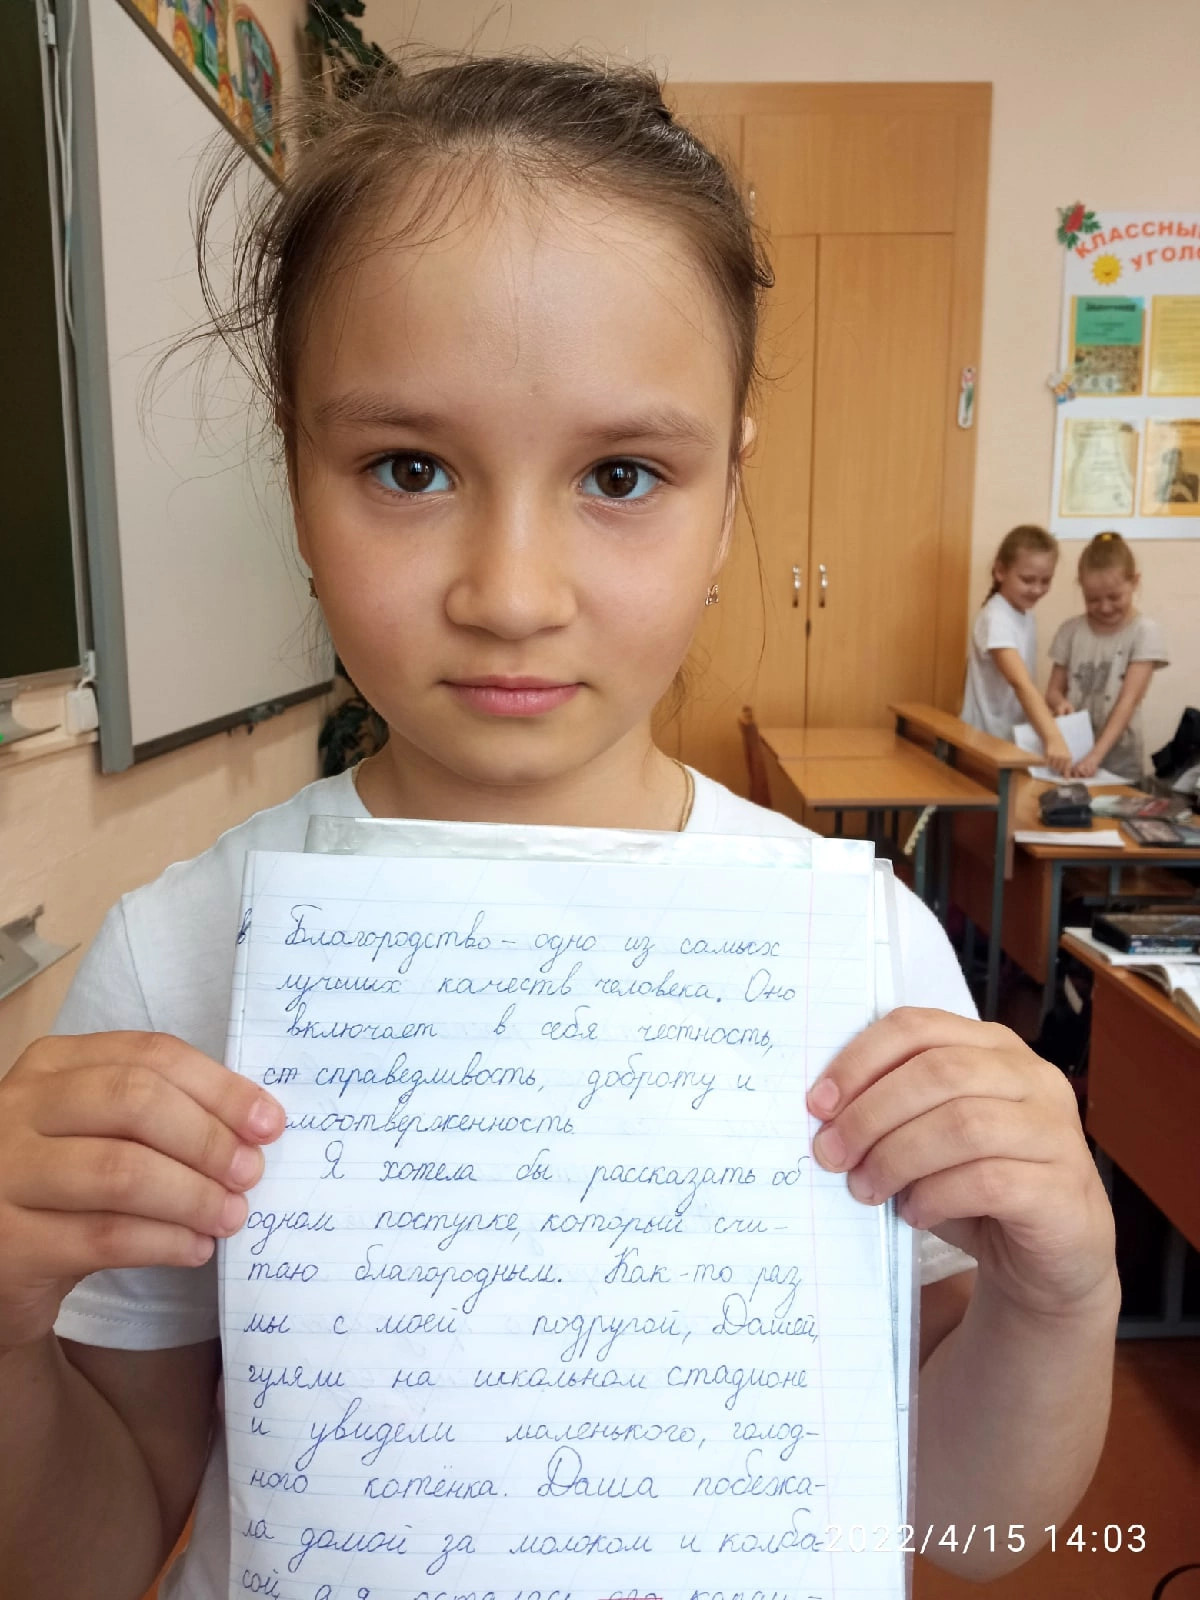 КЛАССНЫЙ
УГОЛО
в Благородство – одно из самых
лучших качеств человека. Оно
включает в себя честность,
ст справедливость, доброту и
амоотверженность
Я хотела бы рассказать об
одном поступке, который счи-
таю благородным. Как-то раз
мы с моей подругой, Дашей,
гуляли на школьном стадионе
и увидели маленького, голод-
ного котёнка. Даша побежа-
ла домой за молоком и колба-
сой, а я осталась его
2022/4/15 14:03